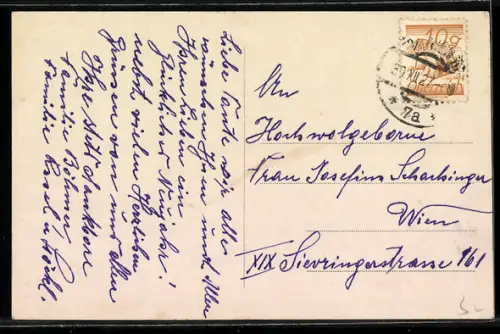 Liebe Tante wir alle
wünschen Ihnen und Allen
Ihren Lieben ein
glückliches Neujahr!
nebst vielen Herzlichen
Grüssen von uns allen
Ihre stets dankbare
Familie Böhmer
Familie
10g
* 7a *
An
Hochwolgeborne
Frau Josefine Scharsinger
Wien
XIX Sieveringerstrasse 161